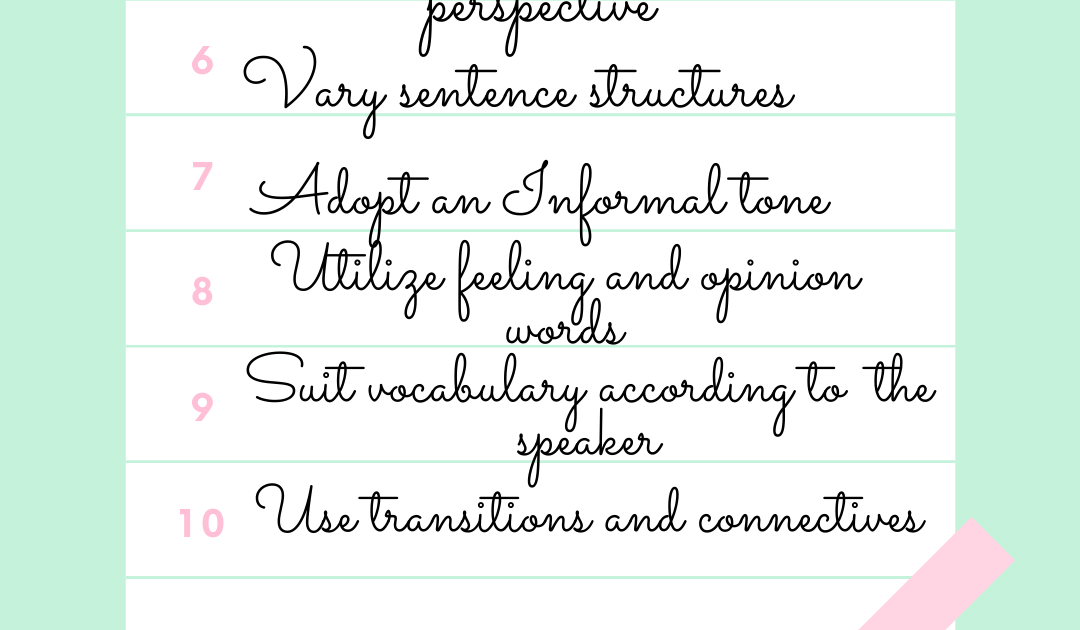 perspective
6 Vary sentence structures
7 Adopt an Informal tone
8 Utilize feeling and opinion
words
9 Suit vocabulary according to the
speaker
10 Use transitions and connectives